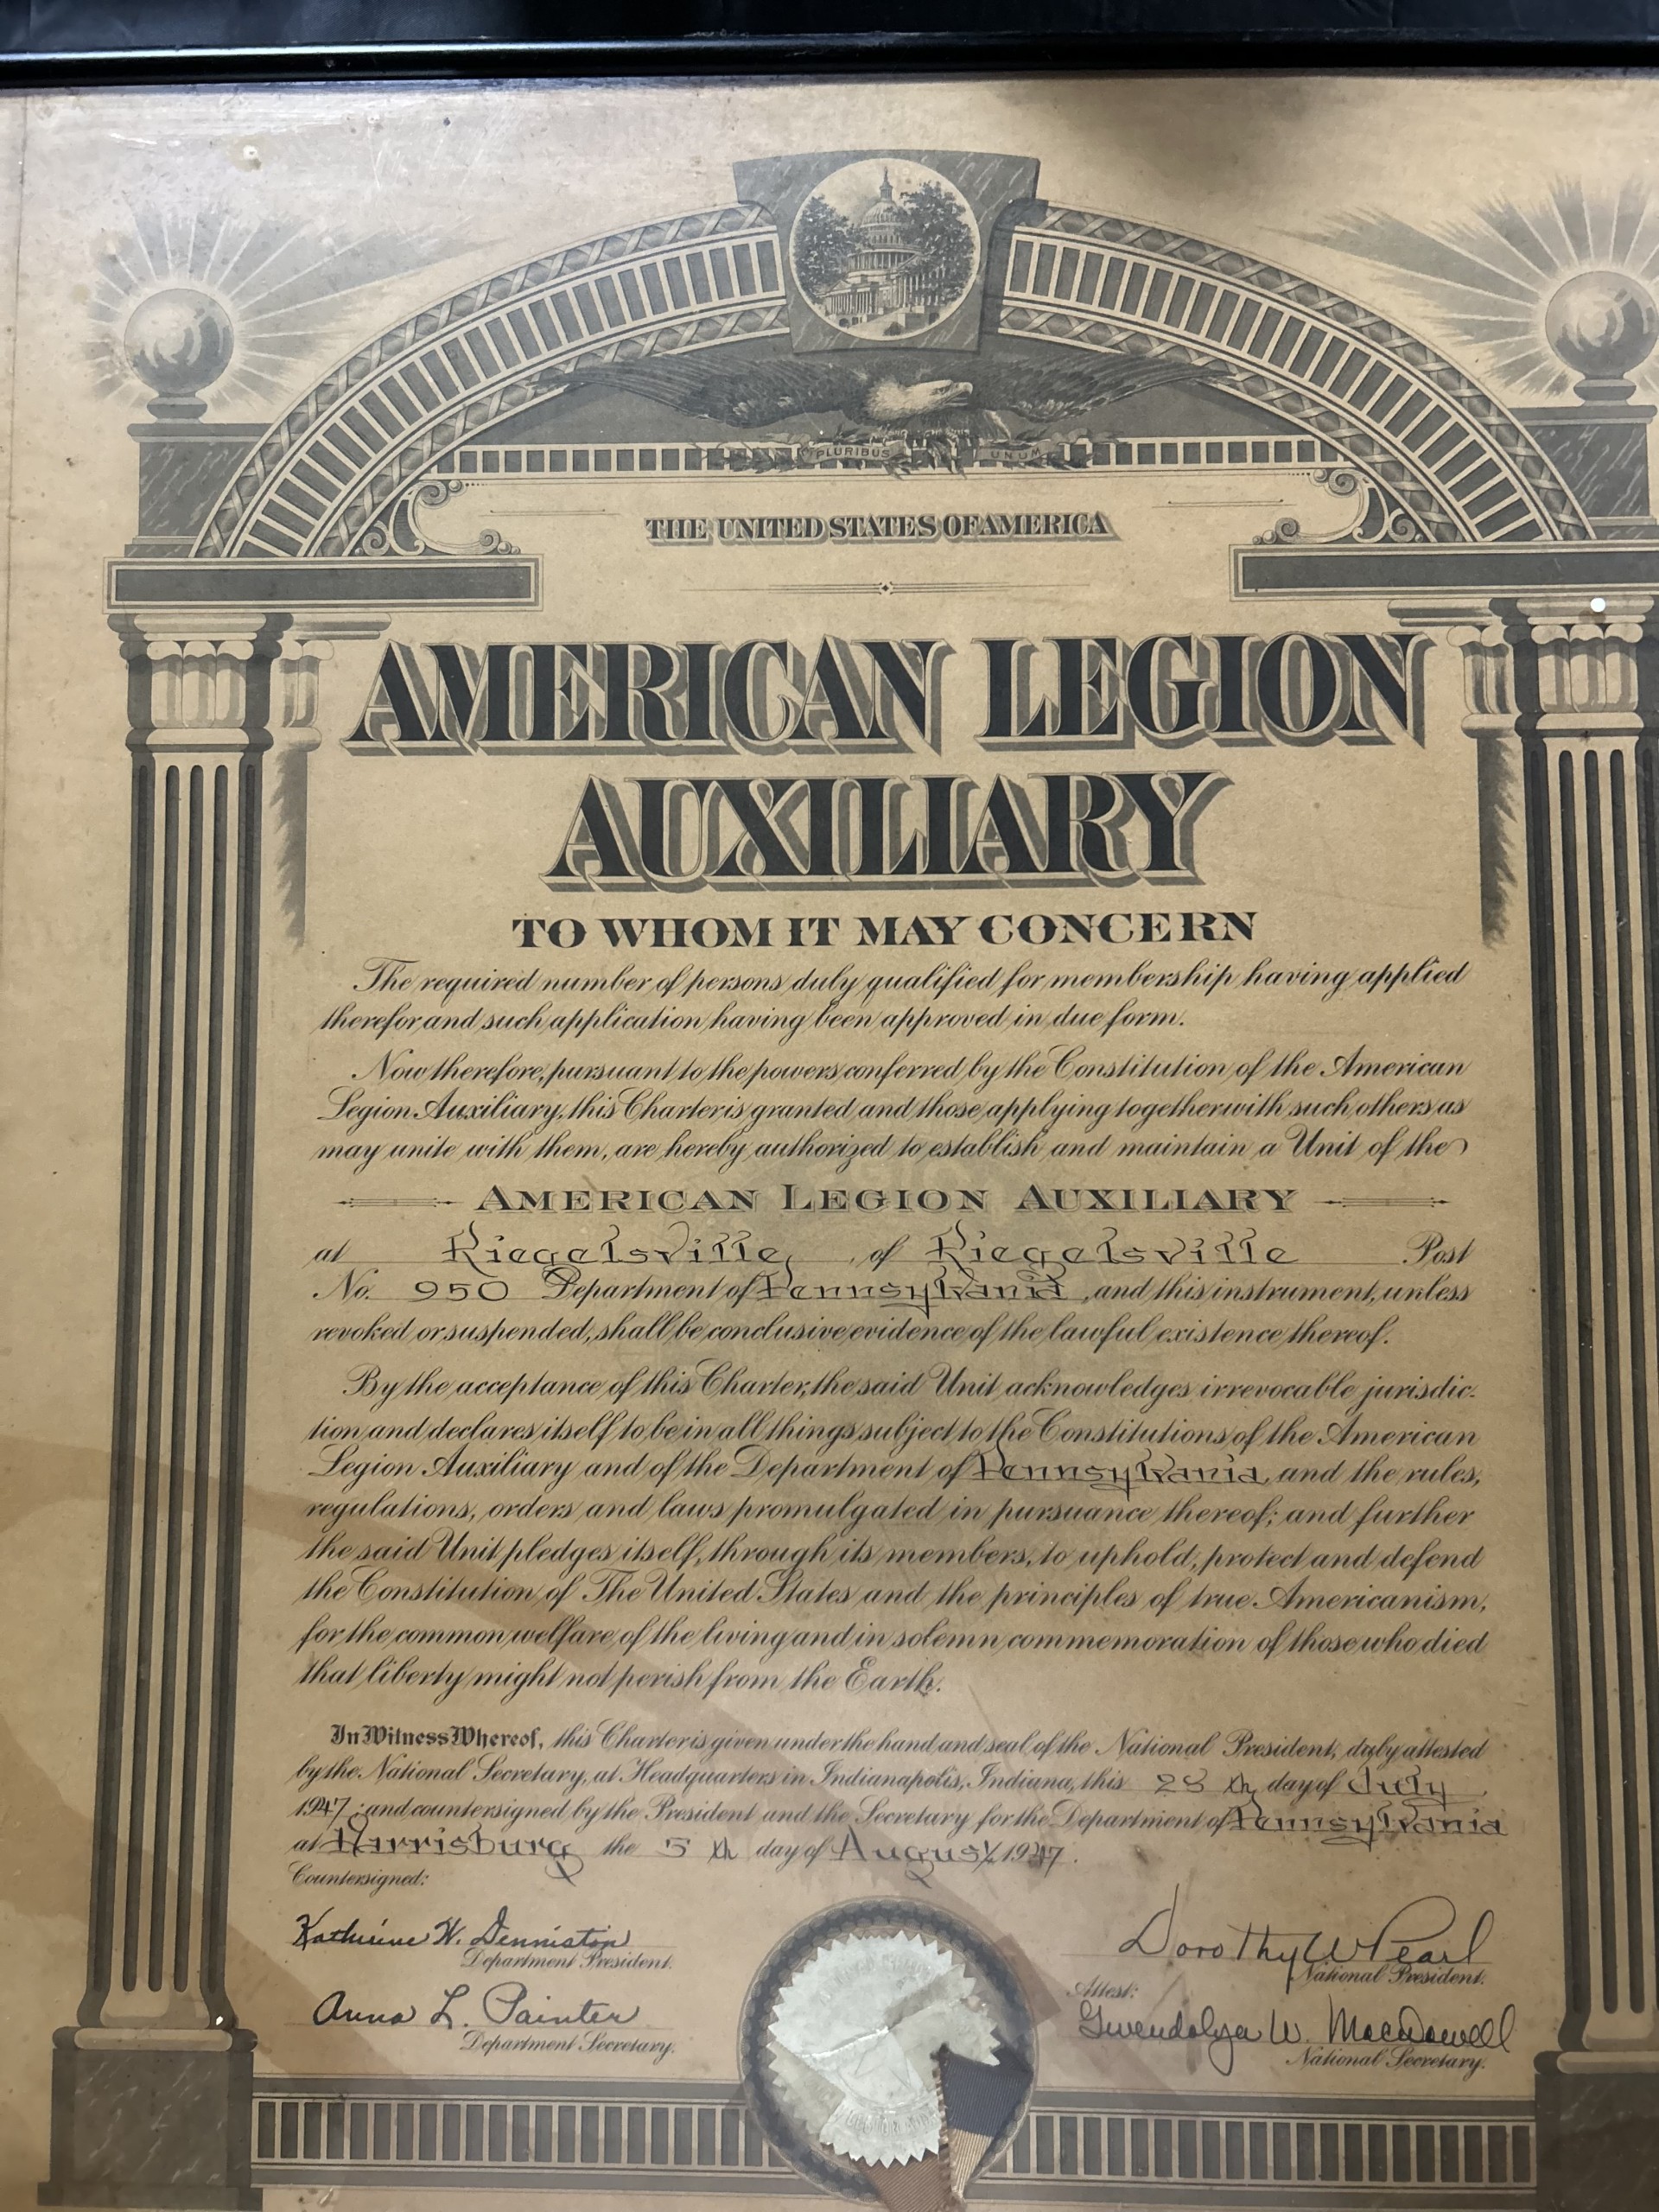 PLURIBUS UNUM
THE UNITED STATES OF AMERICA
AMERICAN LEGION
AUXILIARY
TO WHOM IT MAY CONCERN
The required number of persons duly qualified for membership having applied
therefor and such application having been approved in due form.
Now therefore, pursuant to the powers conferred by the Constitution of the American
Legion Auxiliary, this Charter is granted and those applying together with such others as
may unite with them, are hereby authorized to establish and maintain a Unit of the
AMERICAN LEGION AUXILIARY
at Riegelsville, of Riegelsville Post
No. 950 Department of Pennsylvania, and this instrument, unless
revoked or suspended, shall be conclusive evidence of the lawful existence thereof.
By the acceptance of this Charter, the said Unit acknowledges irrevocable jurisdic-
tion and declares itself to be in all things subject to the Constitutions of the American
Legion Auxiliary and of the Department of Pennsylvania, and the rules,
regulations, orders and laws promulgated in pursuance thereof; and further
the said Unit pledges itself, through its members, to uphold, protect and defend
the Constitution of The United States and the principles of true Americanism,
for the common welfare of the living and in solemn commemoration of those who died
that liberty might not perish from the Earth.
In Witness Whereof, this Charter is given under the hand and seal of the National President, duly attested
by the National Secretary, at Headquarters in Indianapolis, Indiana, this 28 th day of July
1947; and countersigned by the President and the Secretary for the Department of Pennsylvania
at Harrisburg the 5 th day of August, 1947.
Countersigned:
Katherine W. Denniston
Department President.
Dorothy W Pearl
National President.
Attest:
Anna L. Painter
Department Secretary.
Gwendolyn W. MacDowell
National Secretary.